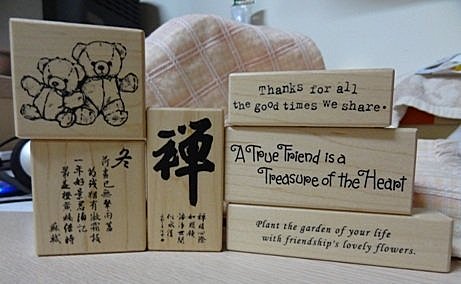 冬
荷盡已無擎雨蓋
菊殘猶有傲霜枝
一年好景君須記
最是橙黃橘綠時
蘇軾
禪
Thanks for all
the good times we share.
A True Friend is a
Treasure of the Heart
Plant the garden of your life
with friendship's lovely flowers.